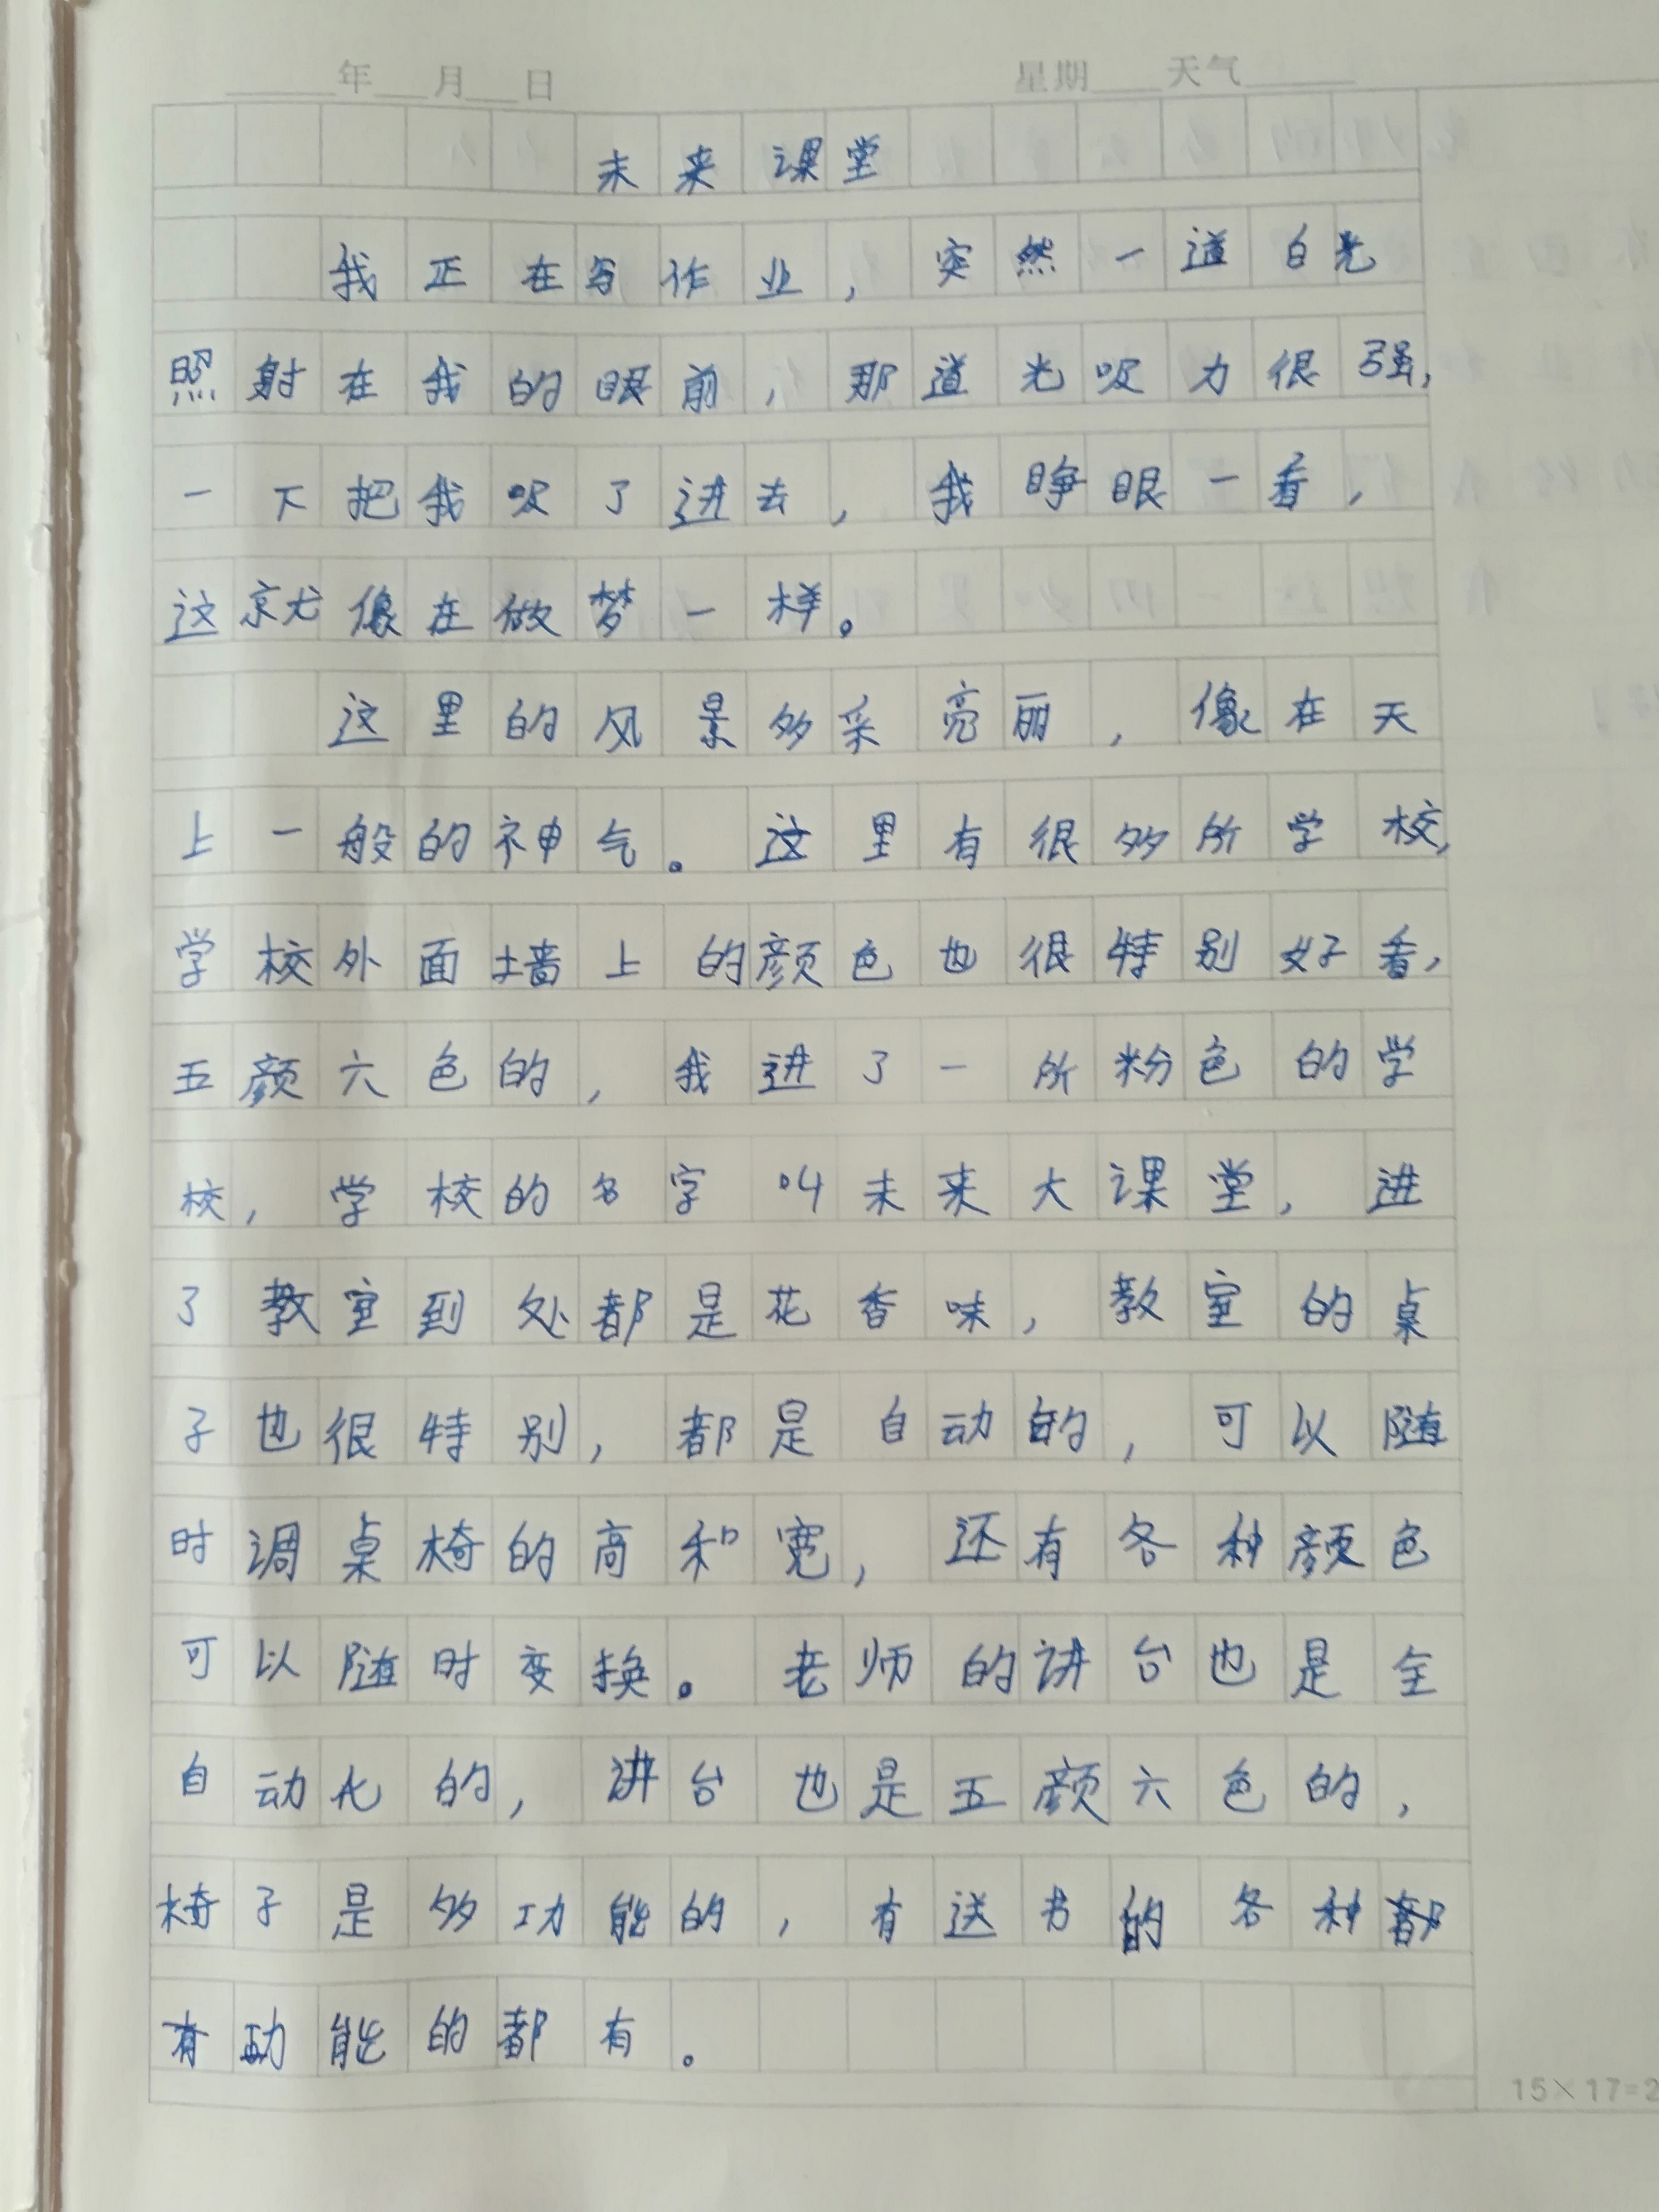 年 月 日 星期 天气
未来课堂
我正在写作业，突然一道白光
照射在我的眼前，那道光吸力很强，
一下把我吸了进去，我睁眼一看，
这就像在做梦一样。
这里的风景多采亮丽，像在天
上一般的神气。这里有很多所学校，
学校外面墙上的颜色也很特别好看，
五颜六色的，我进了一所粉色的学
校，学校的名字叫未来大课堂，进
了教室到处都是花香味，教室的桌
子也很特别，都是自动的，可以随
时调桌椅的高和宽，还有各种颜色
可以随时变换。老师的讲台也是全
自动化的，讲台也是五颜六色的，
椅子是多功能的，有送书的各种都
有功能的都有。
15×17=2